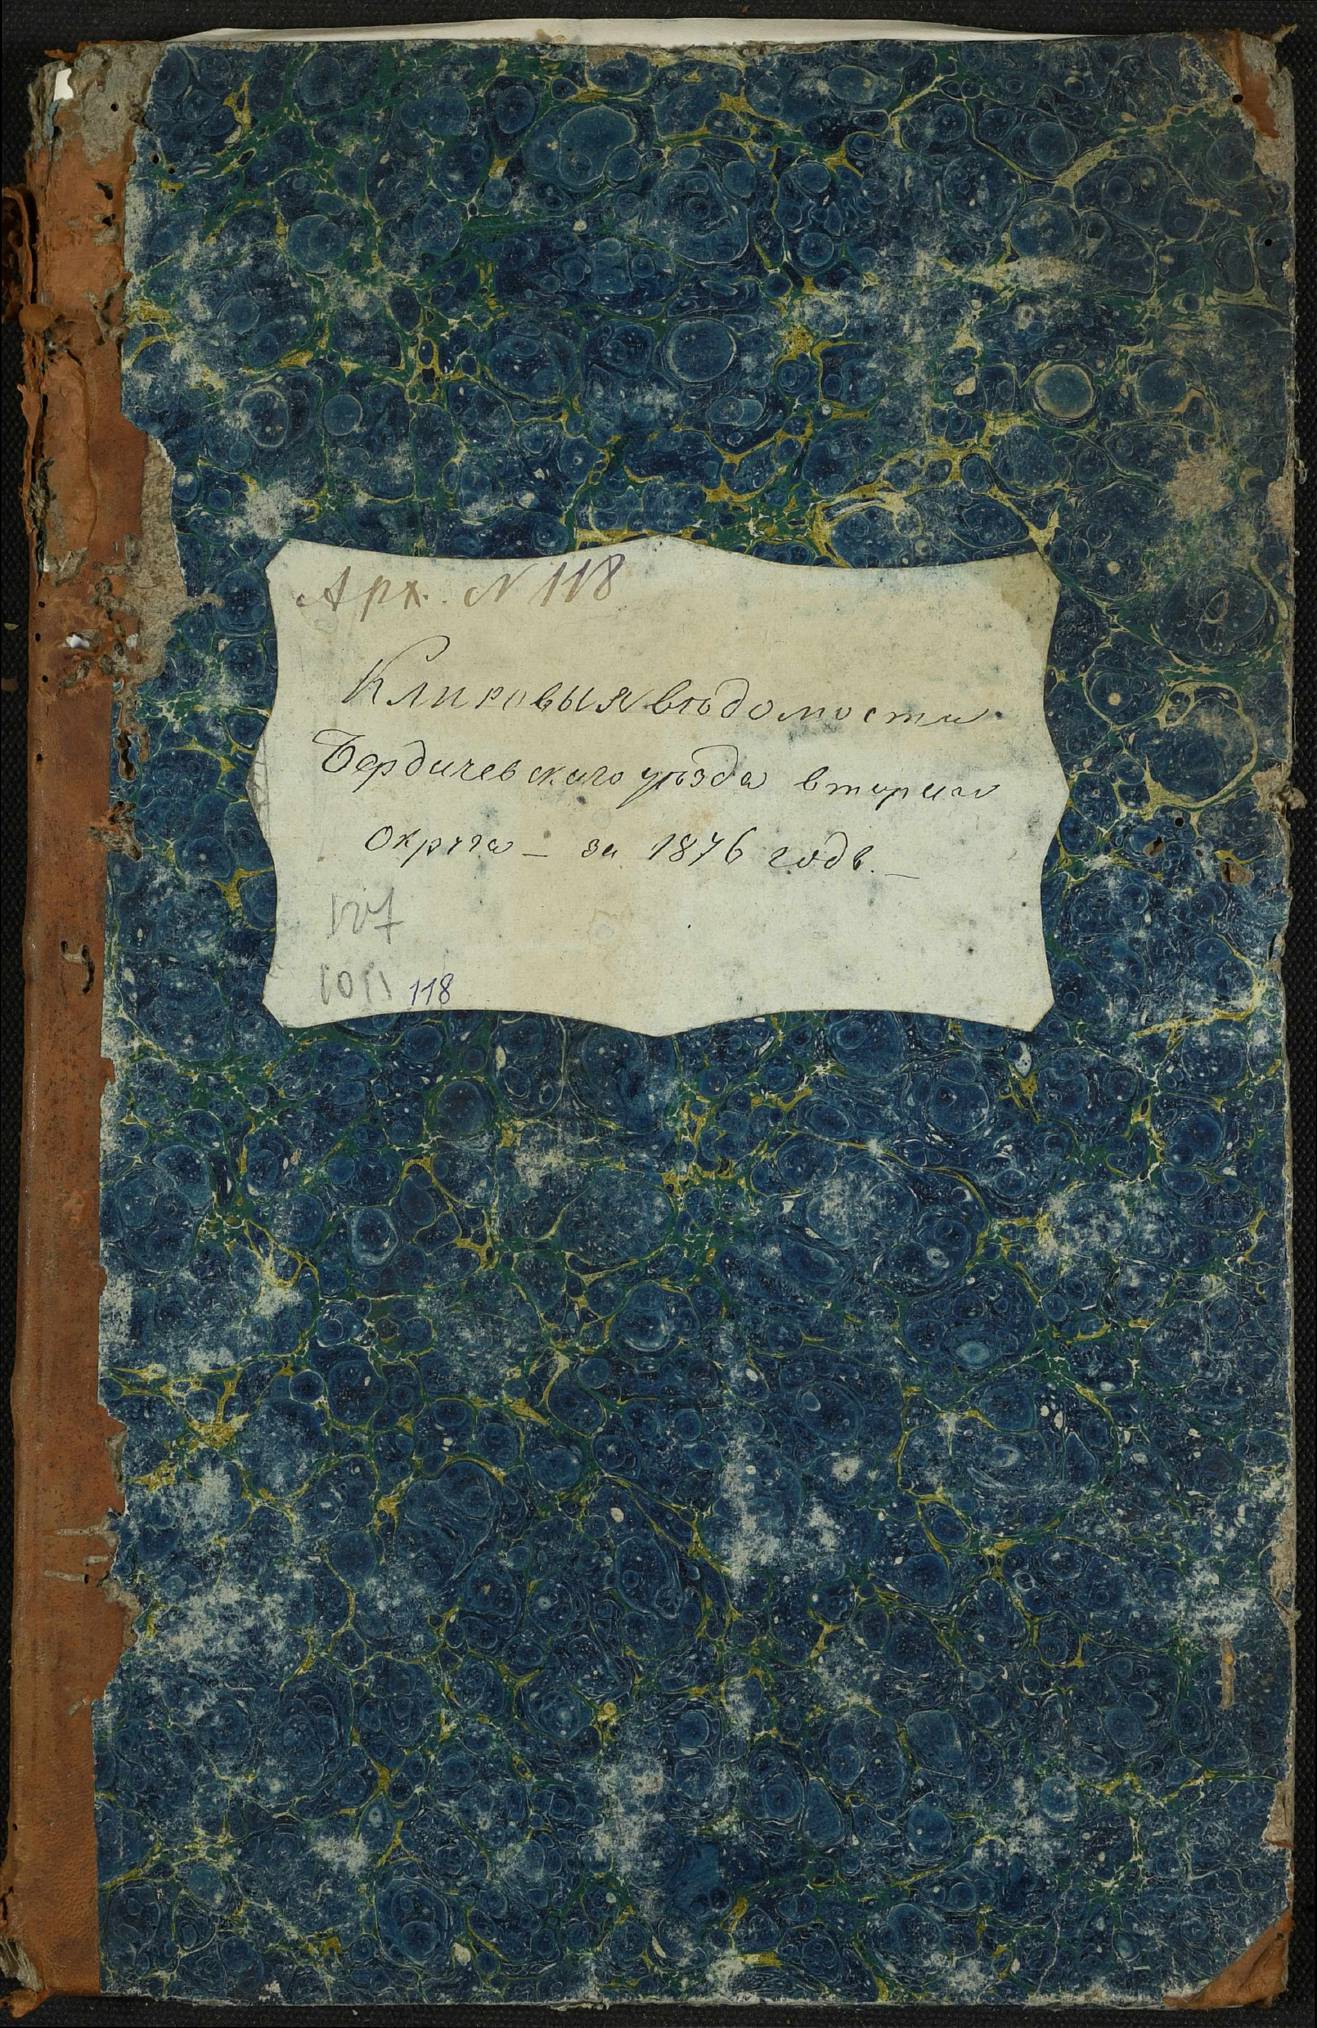 Арх. N 118
Клировыя вѣдомости
Бердичевскаго уѣзда втораго
округа – за 1876 годъ. –
127
118